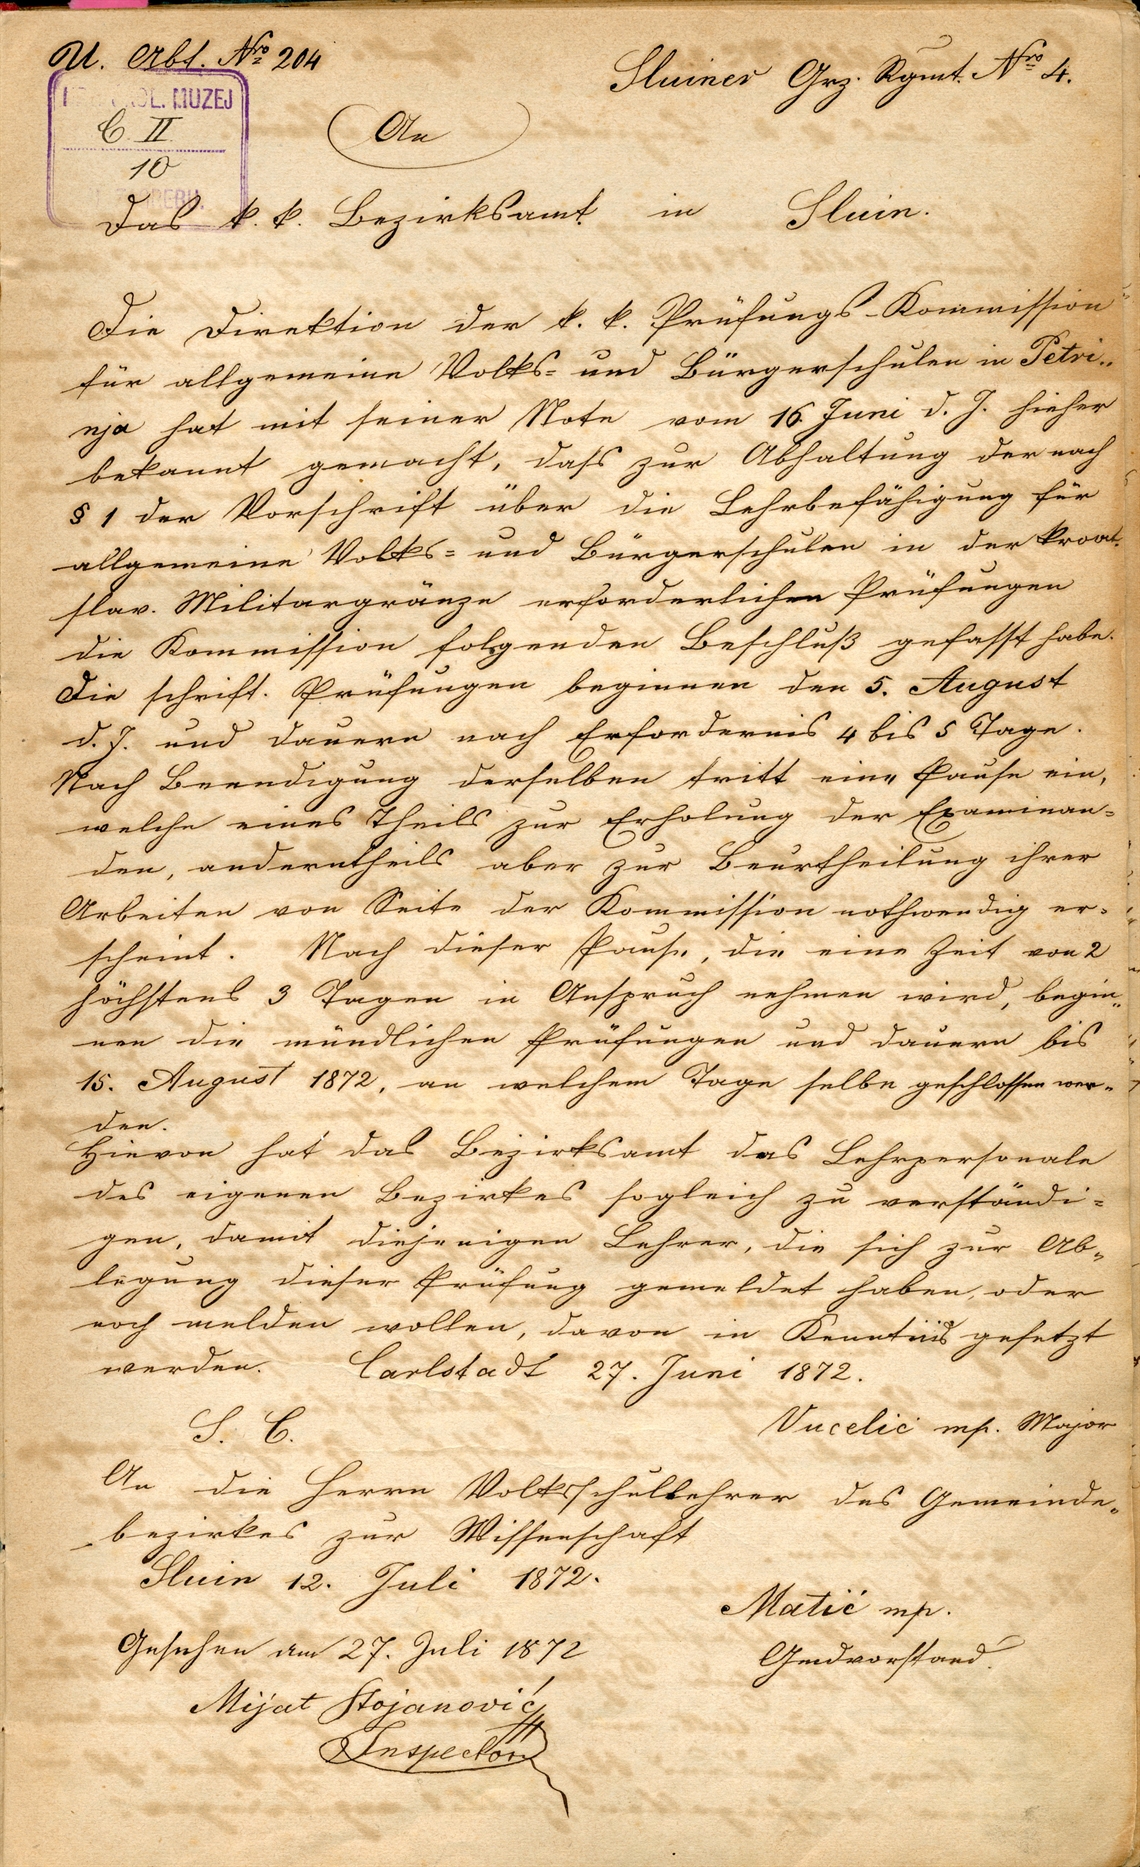 U. Abt. Nro 204
Sluiner Grz. Rgmt. Nro 4.
MUZEJ
C. II
10
An
Das k. k. Bezirksamt in Sluin.
Die Direktion der k. k. Prüfungs-Kommission
für allgemeine Volks= und Bürgerschulen in Petri=
nja hat mit seiner Note vom 16 Juni d. J. hieher
bekannt gemacht, dass zur Abhaltung der nach
§ 1 der Vorschrift über die Lehrbefähigung für
allgemeine Volks= und Bürgerschulen in der kroat.
slav. Militärgränze erforderlichen Prüfungen
die Kommission folgenden Beschluß gefasst habe.
Die schrift. Prüfungen beginnen den 5. August
d. J. und dauern nach Erfordernis 4 bis 5 Tage.
Nach Beendigung derselben tritt eine Pause ein,
welche eines Theils zur Erholung der Examinan=
den, anderntheils aber zur Beurtheilung ihrer
Arbeiten von Seite der Kommission nothwendig er=
scheint. Nach dieser Pause, die eine Zeit von 2
höchstens 3 Tagen in Anspruch nehmen wird, begin=
nen die mündlichen Prüfungen und dauern bis
15. August 1872, an welchem Tage selbe geschlossen wer=
den.
Hievon hat das Bezirksamt das Lehrpersonale
des eigenen Bezirkes sogleich zu verständi=
gen, damit diejenigen Lehrer, die sich zur Ab=
legung dieser Prüfung gemeldet haben, oder
noch melden wollen, davon in Kenntniß gesetzt
werden. Carlstadt 27. Juni 1872.
Vucelić mp. Major
S. C.
An die Herrn Volksschullehrer des Gemeinde=
bezirkes zur Wissenschaft
Sluin 12. Juli 1872.
Matić mp.
Gmdvorstand.
Gesehen am 27. Juli 1872
Mijat Stojanović
Inspector